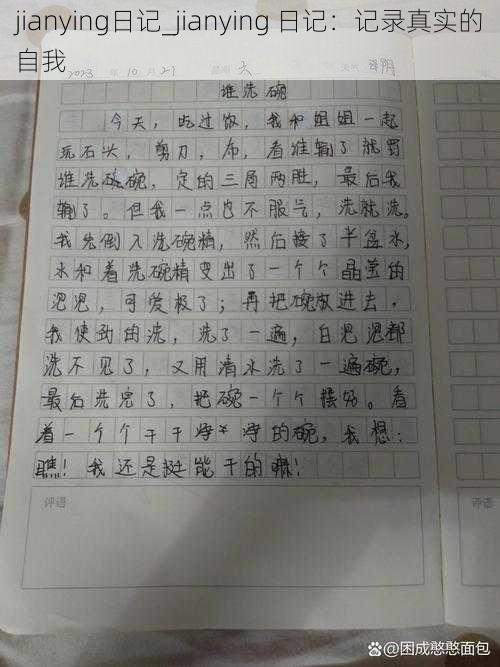 jianying日记_jianying 日记：记录真实的
自我
2023 年 10 月 27 星期 六 天气 阴
谁洗碗
今天，吃过饭，我和姐姐一起
玩石头，剪刀，布，看谁输了就罚
谁洗碗，定的三局两胜，最后我
输了。但我一点也不服气，洗就洗。
我先倒入洗碗精，然后接了半盆水，
水和着洗碗精变出了一个个晶莹的
泡泡，可爱极了；再把碗放进去，
我使劲的洗，洗了一遍，白泡泡都
洗不见了，又用清水洗了一遍碗，
最后洗完了，把碗一个个摆好。看
着一个个干干净净的碗，我想：
瞧！我还是挺能干的嘛！
评语
评语
@困成憨憨面包